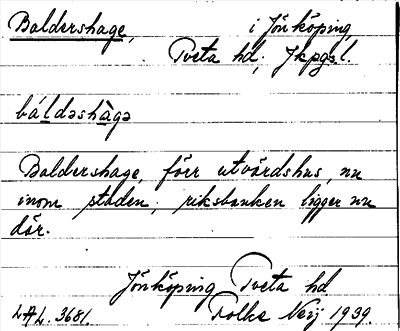 Baldershage, i Jönköping,
Tveta hd, Jkpgsl.
báldəshàgə
Baldershage, förr utvärdshus, nu
inom staden, riksbanken ligger nu
där.
Jönköping Tveta hd
LAL. 3681. Folke 1939.